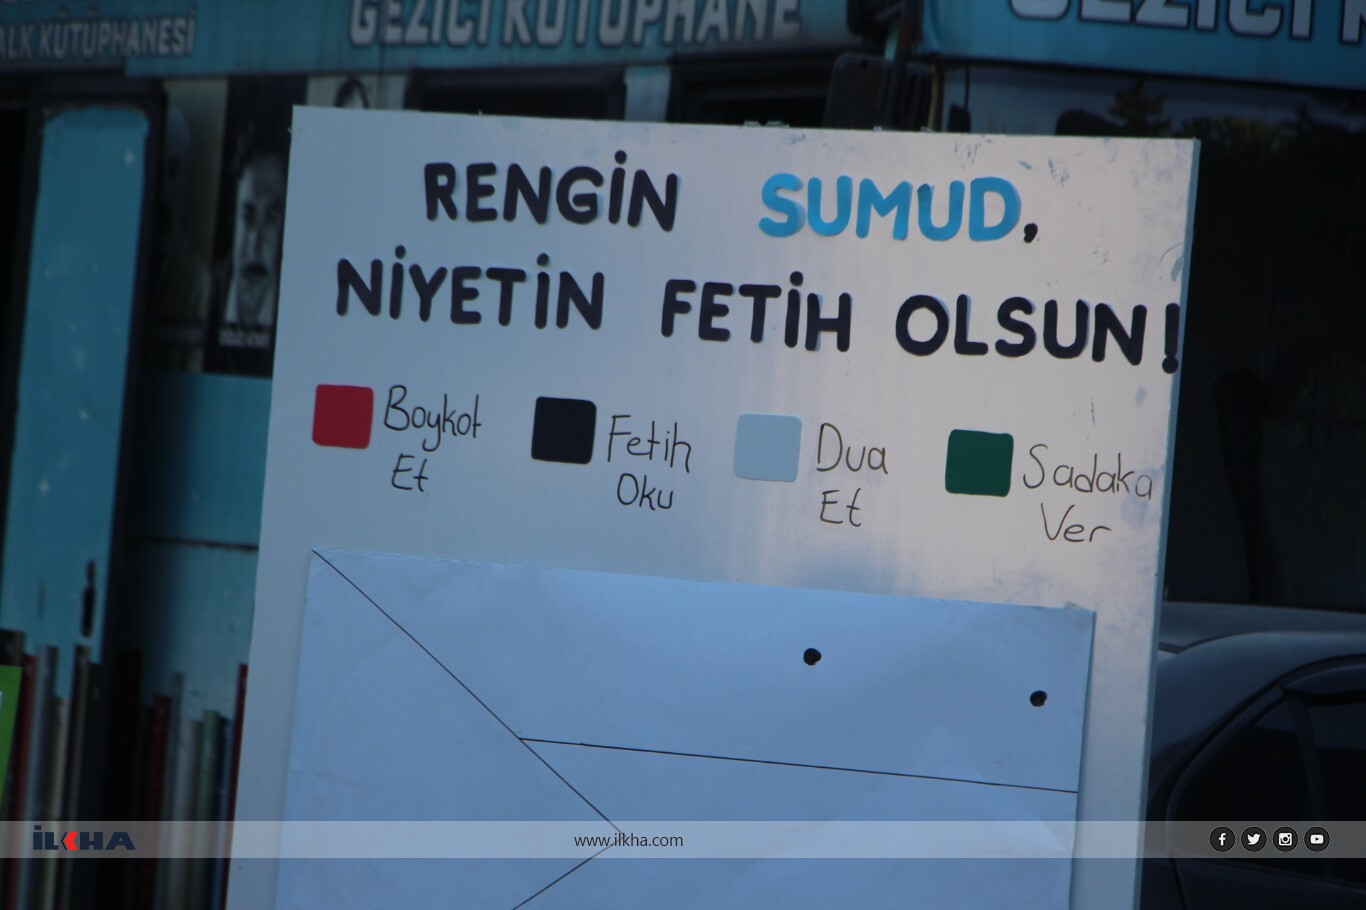 ALK KÜTÜPHANESİ
GEZİCİ KÜTÜPHANE
GEZİCİ
RENGİN SUMUD,
NİYETİN FETİH OLSUN!
Boykot
Et
Fetih
Oku
Dua
Et
Sadaka
Ver
İLKHA
www.ilkha.com